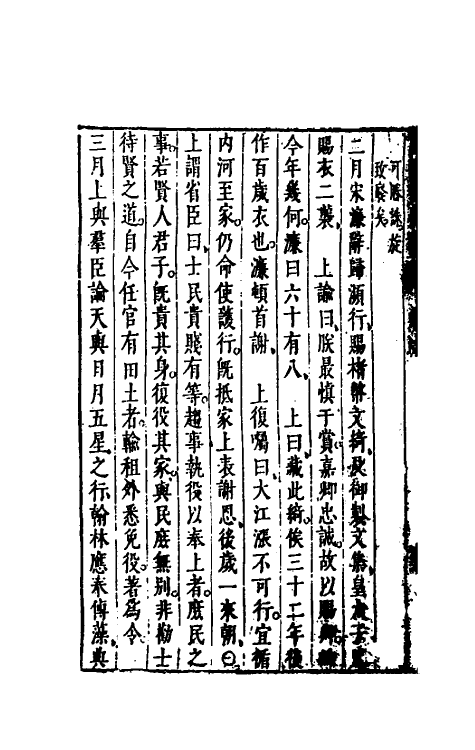 可勝譏哉
致察矣
二月宋濂辭歸瀕行賜楮幣文綺及御製文集皇太子
賜衣二襲　上諭曰朕最慎于賞嘉卿忠誠故以賜卿
今年幾何濂曰六十有八　上曰藏此綺俟三十二年後
作百歲衣也濂頓首謝　上復囑曰大江漲不可行宜循
内河至家仍命使護行旣抵家上表謝恩後歲一來朝曰
上謂省臣曰士民貴賤有等趨事執役以奉上者庶民之
事若賢人君子旣貴其身復役其家與民庶無别非勸士
待賢之道自今任官有田土者輸租外悉免役著爲令
三月上與羣臣論天與日月五星之行翰林應奉傳藻典